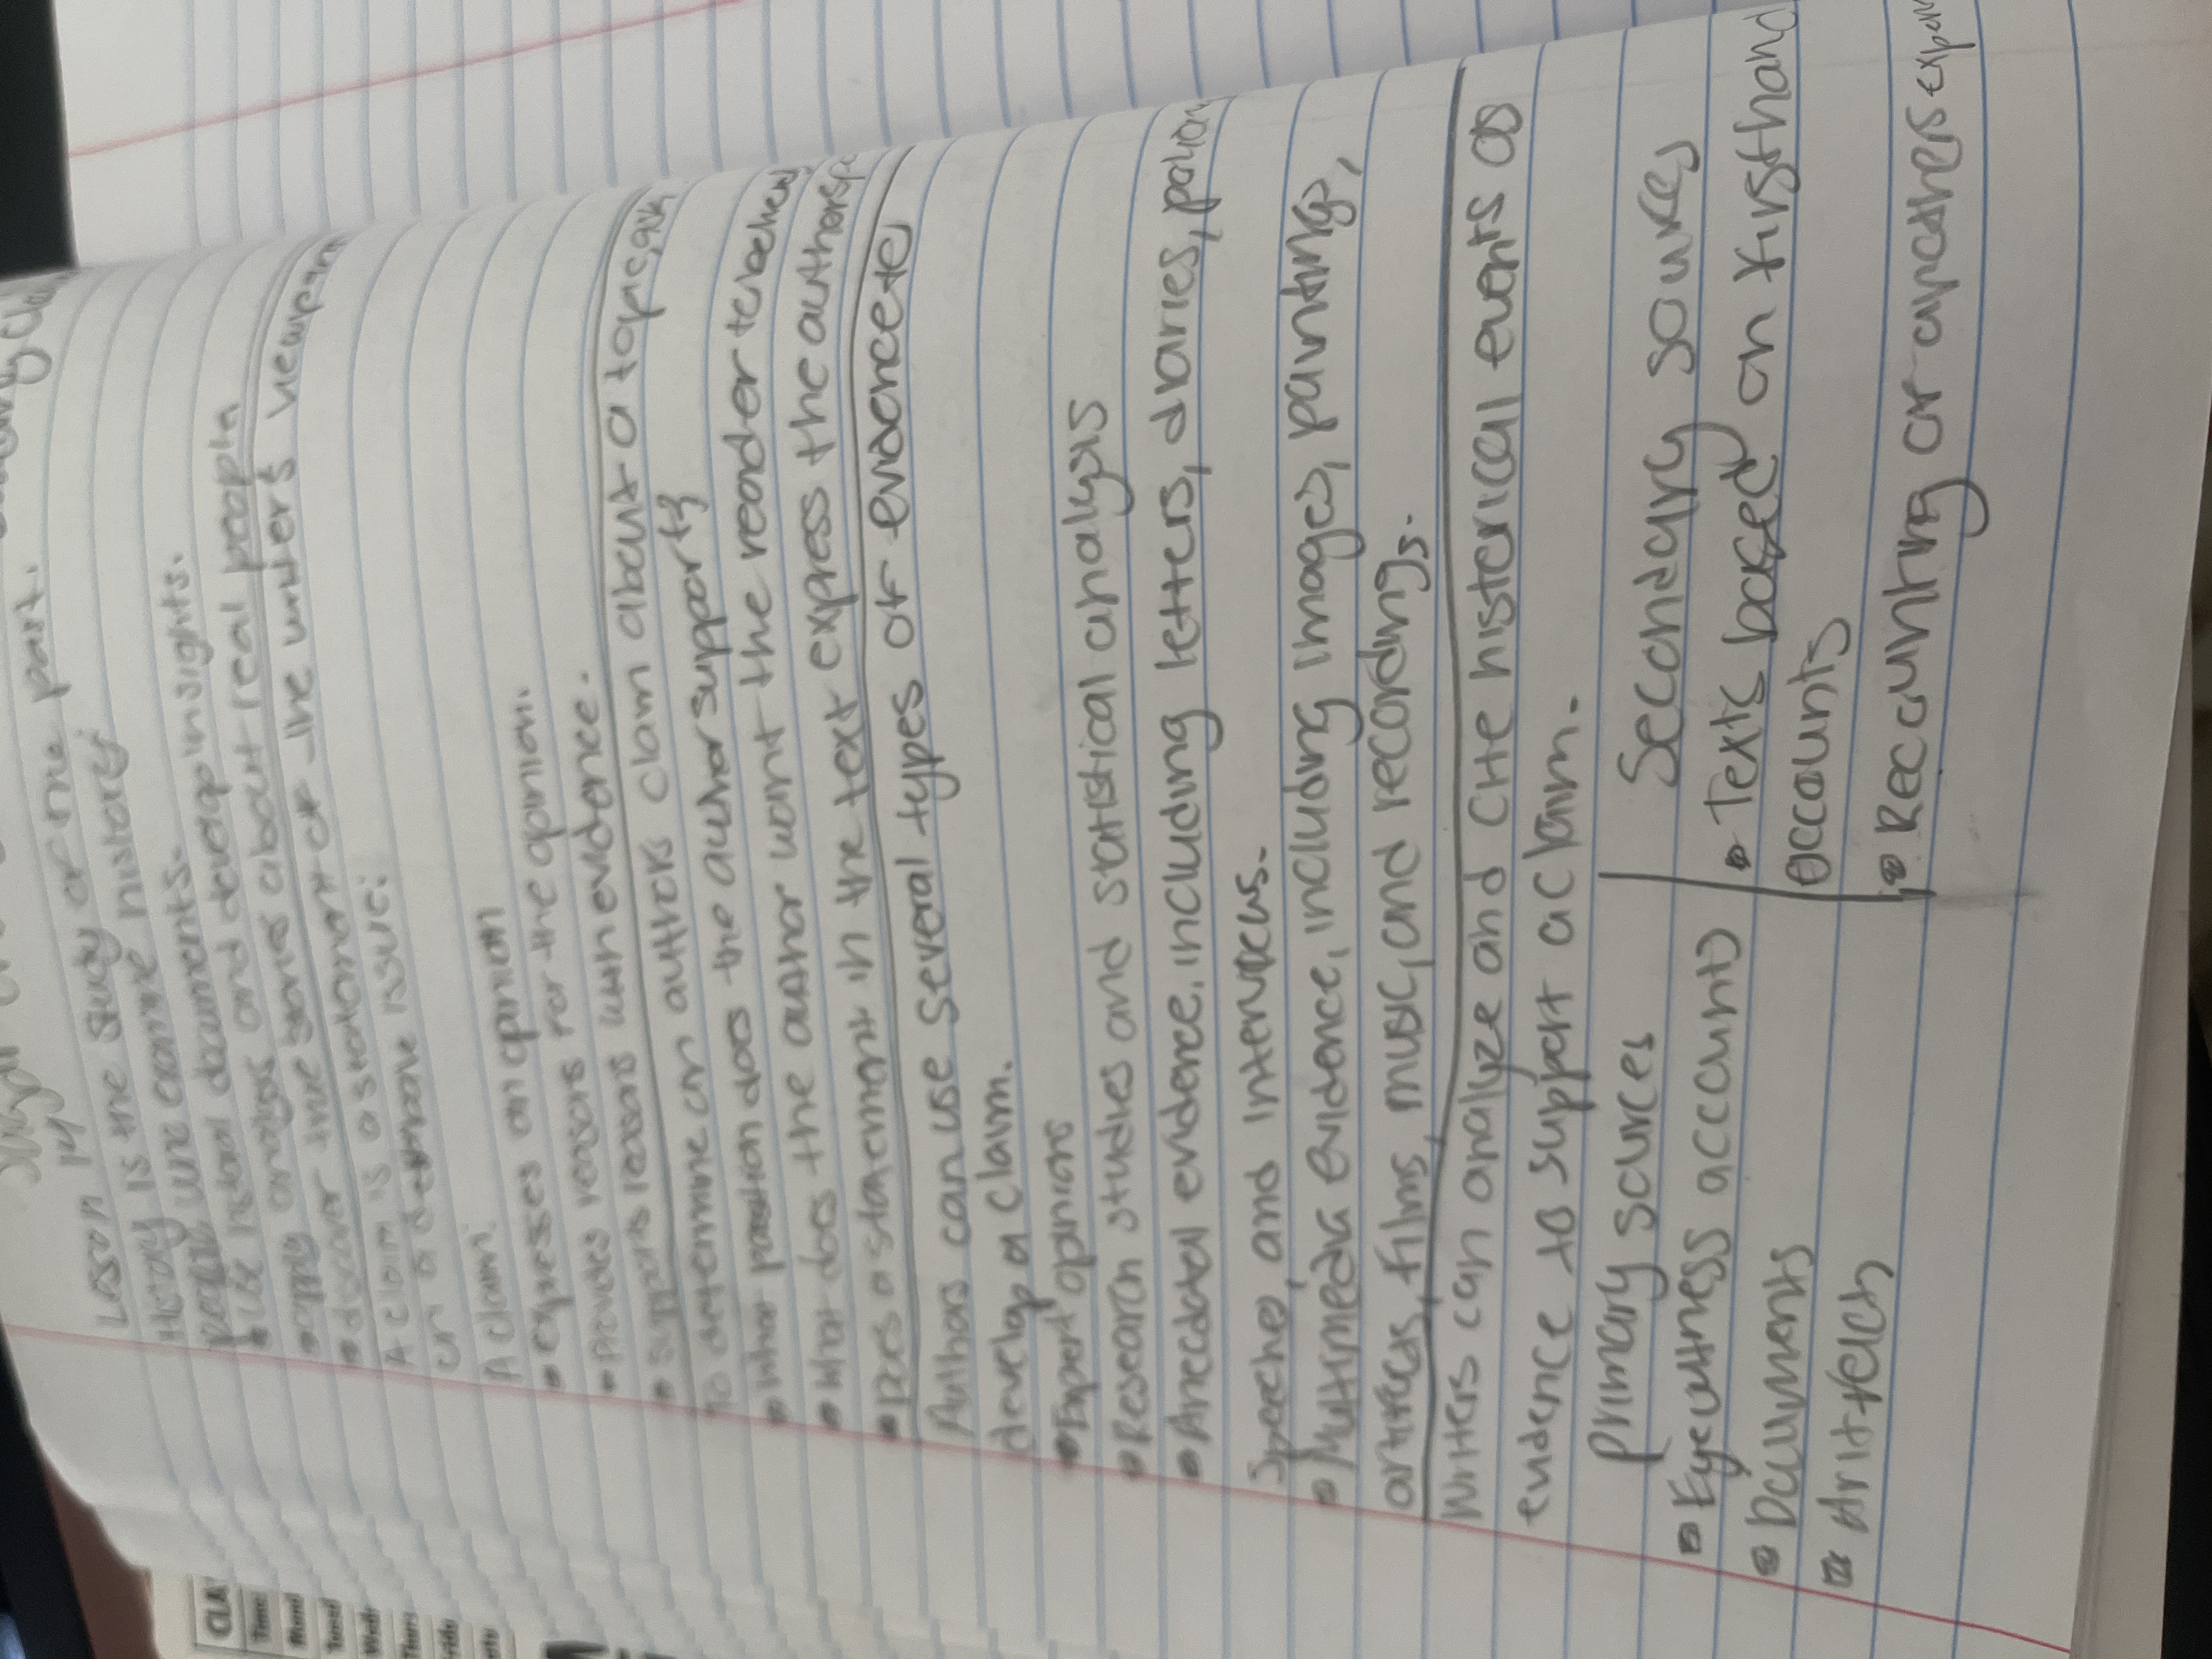 Lesson 14
History is the study of the past.
people who examine history:
• use historical documents.
• apply analysis and develop insights.
• discover true stories about real people
A claim is a statement of the writer's viewpoint
on a debatable issue:
A claim:
• expresses an opinion
• provides reasons for the opinion.
• supports reasons with evidence.
To determine an authors claim about a topic, ask
• What position does the author support?
• What does the author want the reader to believe
• Does a statement in the text express the authors
Authors can use several types of evidence to
develop a claim.
• Expert opinions
• Research studies and statistical analysis
• Anecdotal evidence, including letters, diaries,
Speeches, and interviews.
• Multimedia evidence, including images, paintings,
artifacts, films, music, and recordings.
Writers can analyze and cite historical events as
evidence to support a claim.
primary sources
• Eyewitness accounts
• Documents
• Aritfacts
Secondary sources
• Texts based on firsthand
accounts
• Recounting of anothers